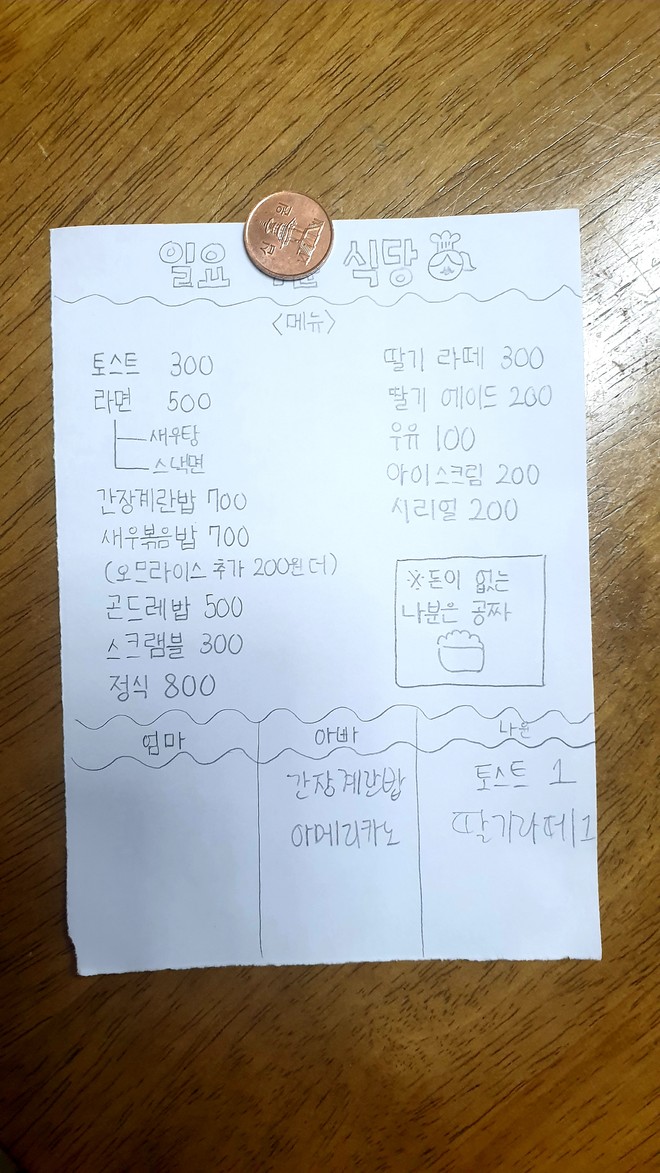 십 원
일요 식당
<메뉴>
토스트 300
라면 500
새우탕
스낵면
간장계란밥 700
새우볶음밥 700
(오므라이스 추가 200원 더)
곤드레밥 500
스크램블 300
정식 800
딸기 라떼 300
딸기 에이드 200
우유 100
아이스크림 200
시리얼 200
※돈이 없는
나분은 공짜
엄마
아빠
간장계란밥
아메리카노
나윤
토스트 1
딸기라떼 1